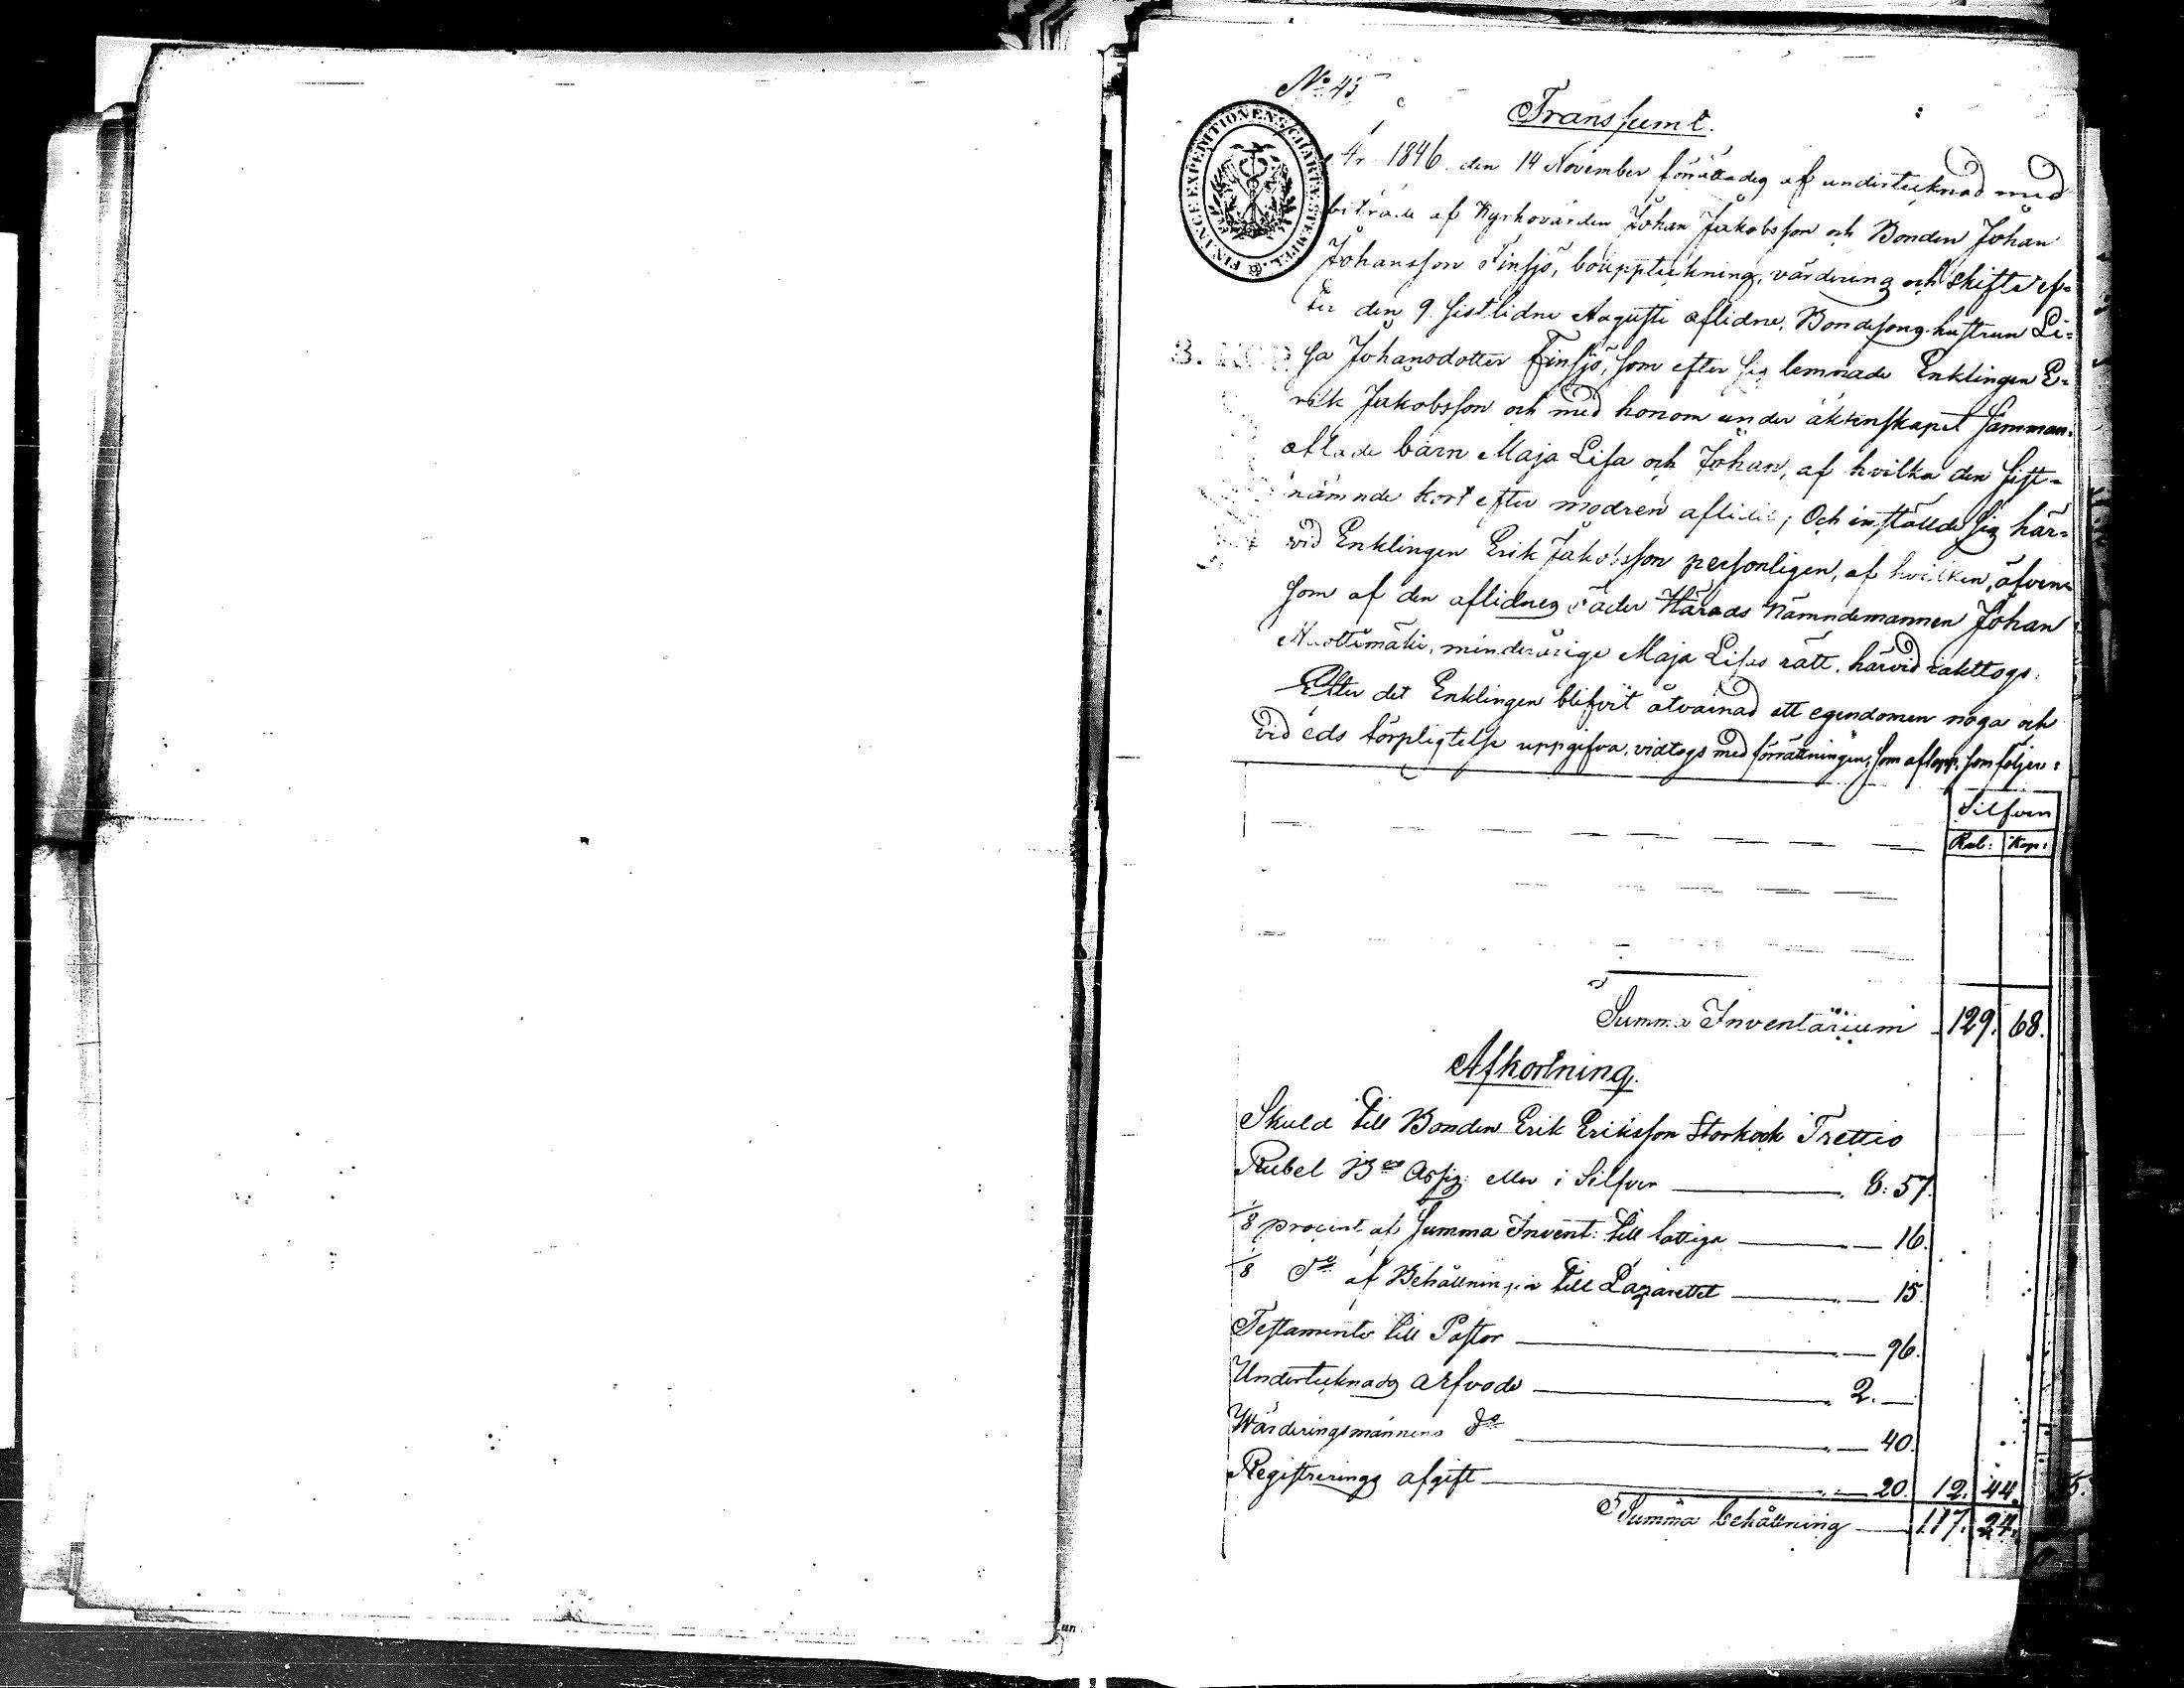 No 45
Transsumt.
FINANCE EXPEDITIONENS CHARTÆ STEMPEL.
År 1846 den 14 November förrättades af undertecknad med
biträde af Kyrkovärden Johan Jakobsson och Bonden Johan
Johansson Finsjö, bouppteckning, värdering och skifte ef=
ter den 9 sistlidne Augusti aflidne, Bondesons hustrun Li=
sa Johansdotter Finsjö, som efter sig lemnade Enklingen E=
rik Jakobsson och med honom under äktenskapet samman=
aflade barn Maja Lisa och Johan, af hvilka den sist=
nämnde kort efter modren aflidit; Och inställde sig här=
vid Enklingen Erik Jakobsson personligen, af hvilken, äfven=
som af den aflidnes fader Härads Nämndemannen Johan
minderåriga Maja Lisas rätt härvid iakttogs.
Efter det Enklingen blifvit åtvarnad att egendomen noga och
vid eds förpligtelse uppgifva, vidtogs med förrättningen, som aflopp, som följer:
Silfver
Rub: Kop:
Summa Inventarium 129. 68.
Afkortning.
Skuld till Bonden Erik Eriksson Storkock Trettio
Rubel Bco Assig: eller i Silfver 8: 57.
1/8 procent af Summa Invent: till fattiga — 16.
1/8 do af Behållningen till Lazarettet — 15.
Testamente till Pastor — 96.
Undertecknads arfvode 2. —
Wärderingsmännens do — 40.
Registrerings afgift — 20. 12. 44.
Summa behållning 117. 24.